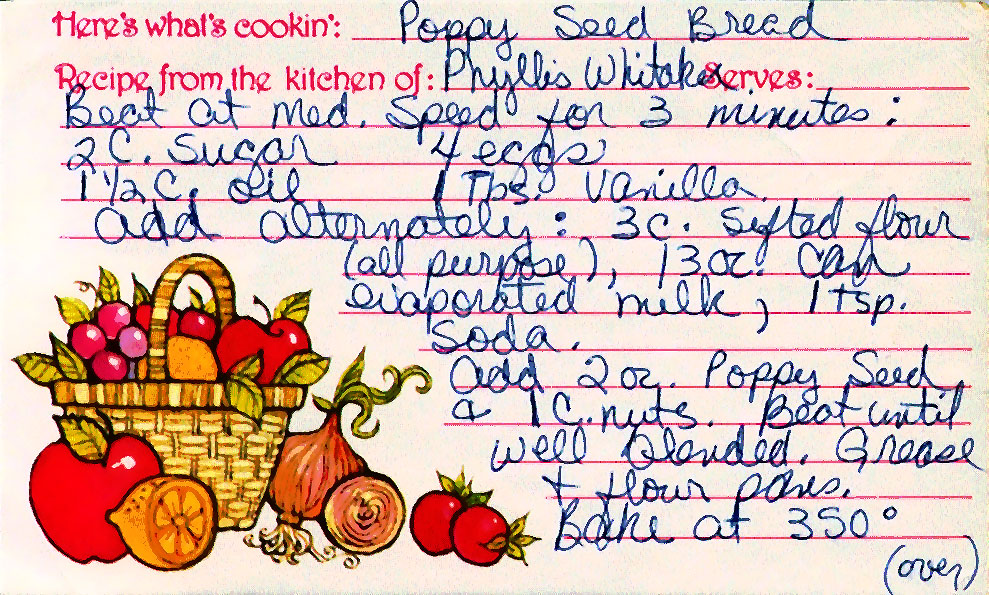 Here's what's cookin': Poppy Seed Bread
Recipe from the kitchen of: Phyllis Whitaker Serves:
Beat at Med. Speed for 3 minutes:
2 C. Sugar 4 eggs
1 1/2 C. Oil 1 Tbs. Vanilla
Add alternately: 3c. Sifted flour
(all purpose), 13 oz. Can
evaporated milk, 1 tsp.
Soda.
Add 2 oz. Poppy Seed
& 1 C. nuts. Beat until
well blended. Grease
+ flour pans.
Bake at 350°
(over)